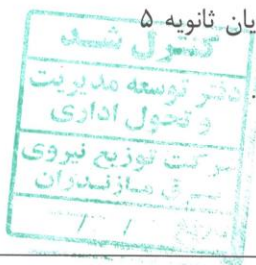 یان ثانویه ۵
کنترل شد
دفتر توسعه مدیریت
و تحول اداری
شرکت توزیع نیروی
برق مازندران
/ /